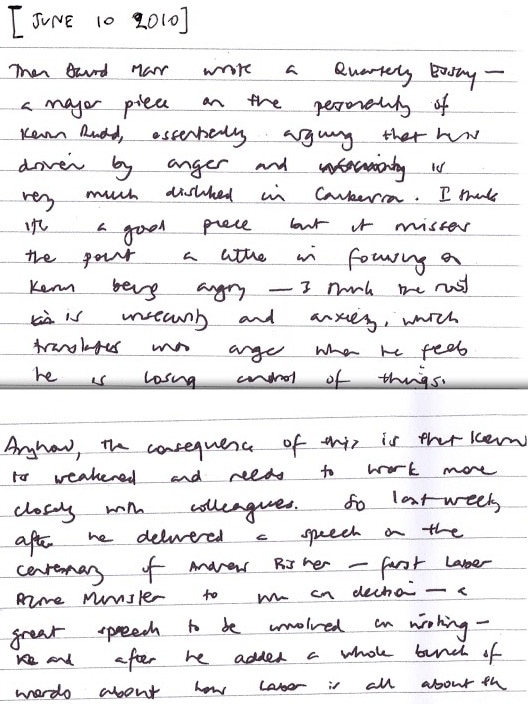 [JUNE 10 2010]
Then David Marr wrote a Quarterly Essay —
a major piece on the personality of
Kevin Rudd, essentially arguing that he's
driven by anger and is
very much disliked in Canberra. I think
it's a good piece but it misses
the point a little in focusing on
Kevin being angry — I think the root
is insecurity and anxiety, which
translates into anger when he feels
he is losing control of things.
Anyhow, the consequence of this is that Kevin
is weakened and needs to work more
closely with colleagues. So last week
after he delivered a speech on the
centenary of Andrew Fisher — first Labor
Prime Minister to win an election — a
great speech to be involved in writing —
and after he added a whole bunch of
words about how Labor is all about th